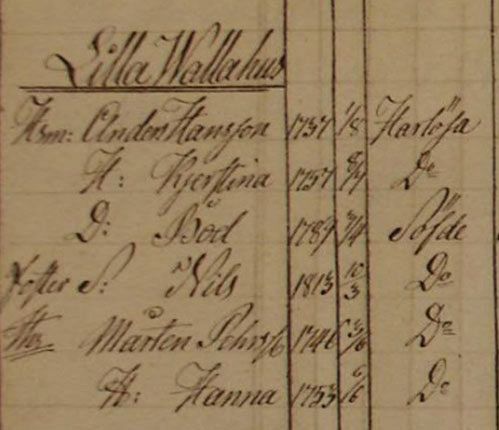 Lilla Wallahus
Hsm: Anders Hansson 1757 1/8 Harlösa
H: Kjerstina 1757 8/7 Do
D: Boel 1789 7/4 Söfde
foster S: Nils 1813 10/3 Do
Mårten Pehrss 1746 3/6 Do
H: Hanna 1753 6/6 Do